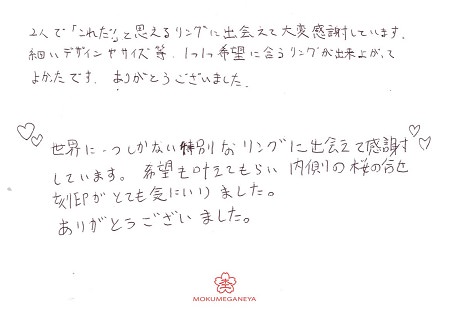 2人で「これだ!」と思えるリングに出会えて大変感謝しています。
細いデザインやサイズ等、1つ1つ希望に合うリングが出来上がって
よかったです。ありがとうございました。
世界に一つしかない特別なリングに出会えて感謝
しています。希望も叶えてもらい内側の桜の合せ
刻印がとても気にいりました。
ありがとうございました。
MOKUMEGANEYA